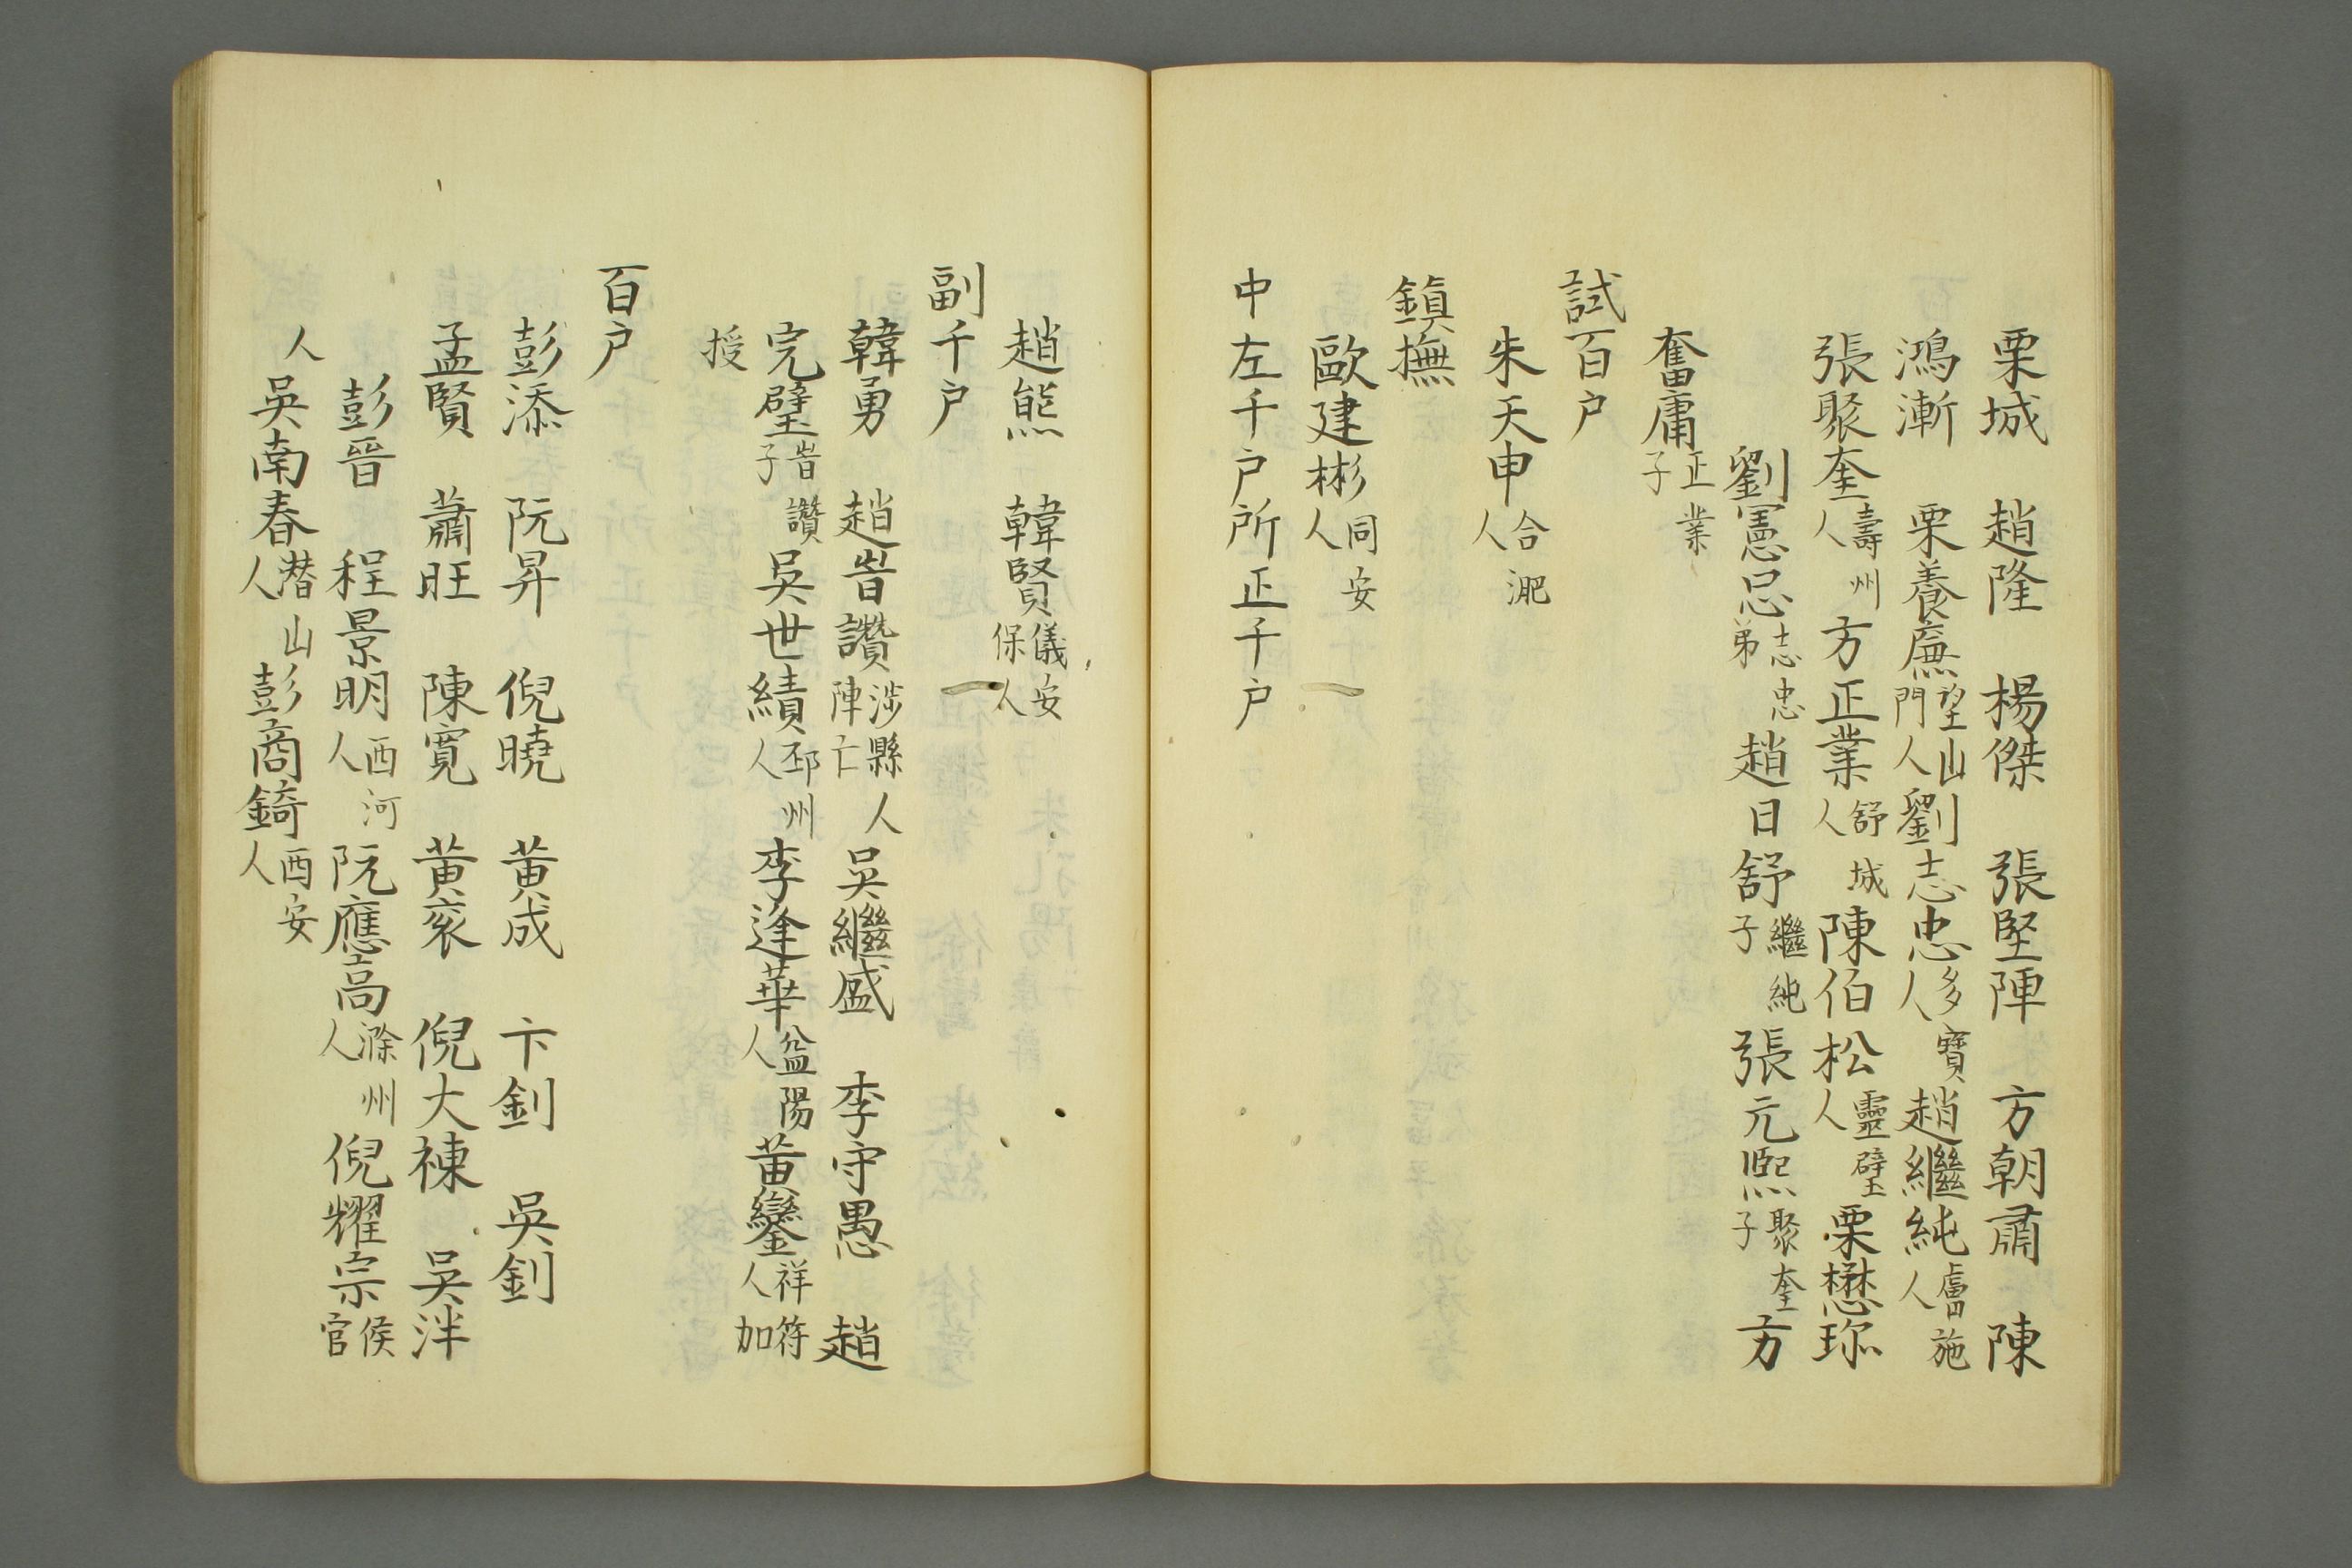 栗城　趙隆　楊傑　張堅陣　方朝肅　陳
鴻漸　栗養廉望山門人劉志忠多寶人趙繼純膚施人
張聚奎壽州人方正業舒城人陳伯松靈璧人栗懋珎
劉憲忠志忠弟趙日舒繼純子張元熙聚奎子方
奮庸正業子
試百户
朱天申合淝人
鎮撫
歐建彬同安人
中左千户所正千户
趙熊　韓賢儀安保人
副千户
韓勇　趙訾讚涉縣人陣亡吳繼盛　李守愚　趙
完璧訾讚子吳世績邳州人李逢華益陽人黄鑾祥符人加
授
百户
彭添　阮昇　倪曉　黄成　卞釗　吳釗
孟賢　蕭旺　陳寛　黄衮　倪大棟　吳泮
彭晉　程景明西河人阮應高滁州人倪耀宗侯官
人吳南春潜山人彭商錡酉安人